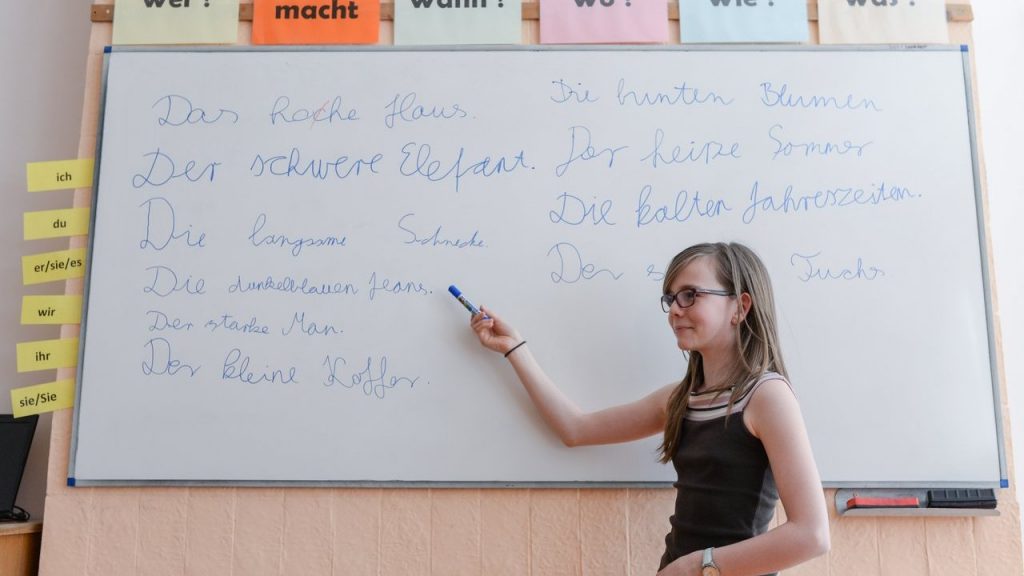 wer?
macht
wann?
wo?
wie?
was?
Das hohe Haus.
Der schwere Elefant.
Die langsame Schnecke.
Die dunkelblauen Jeans.
Der starke Man.
Der kleine Koffer.
Die bunten Blumen
Der heiße Sommer
Die kalten Jahreszeiten.
Der Fuchs
ich
du
er/sie/es
wir
ihr
sie/Sie